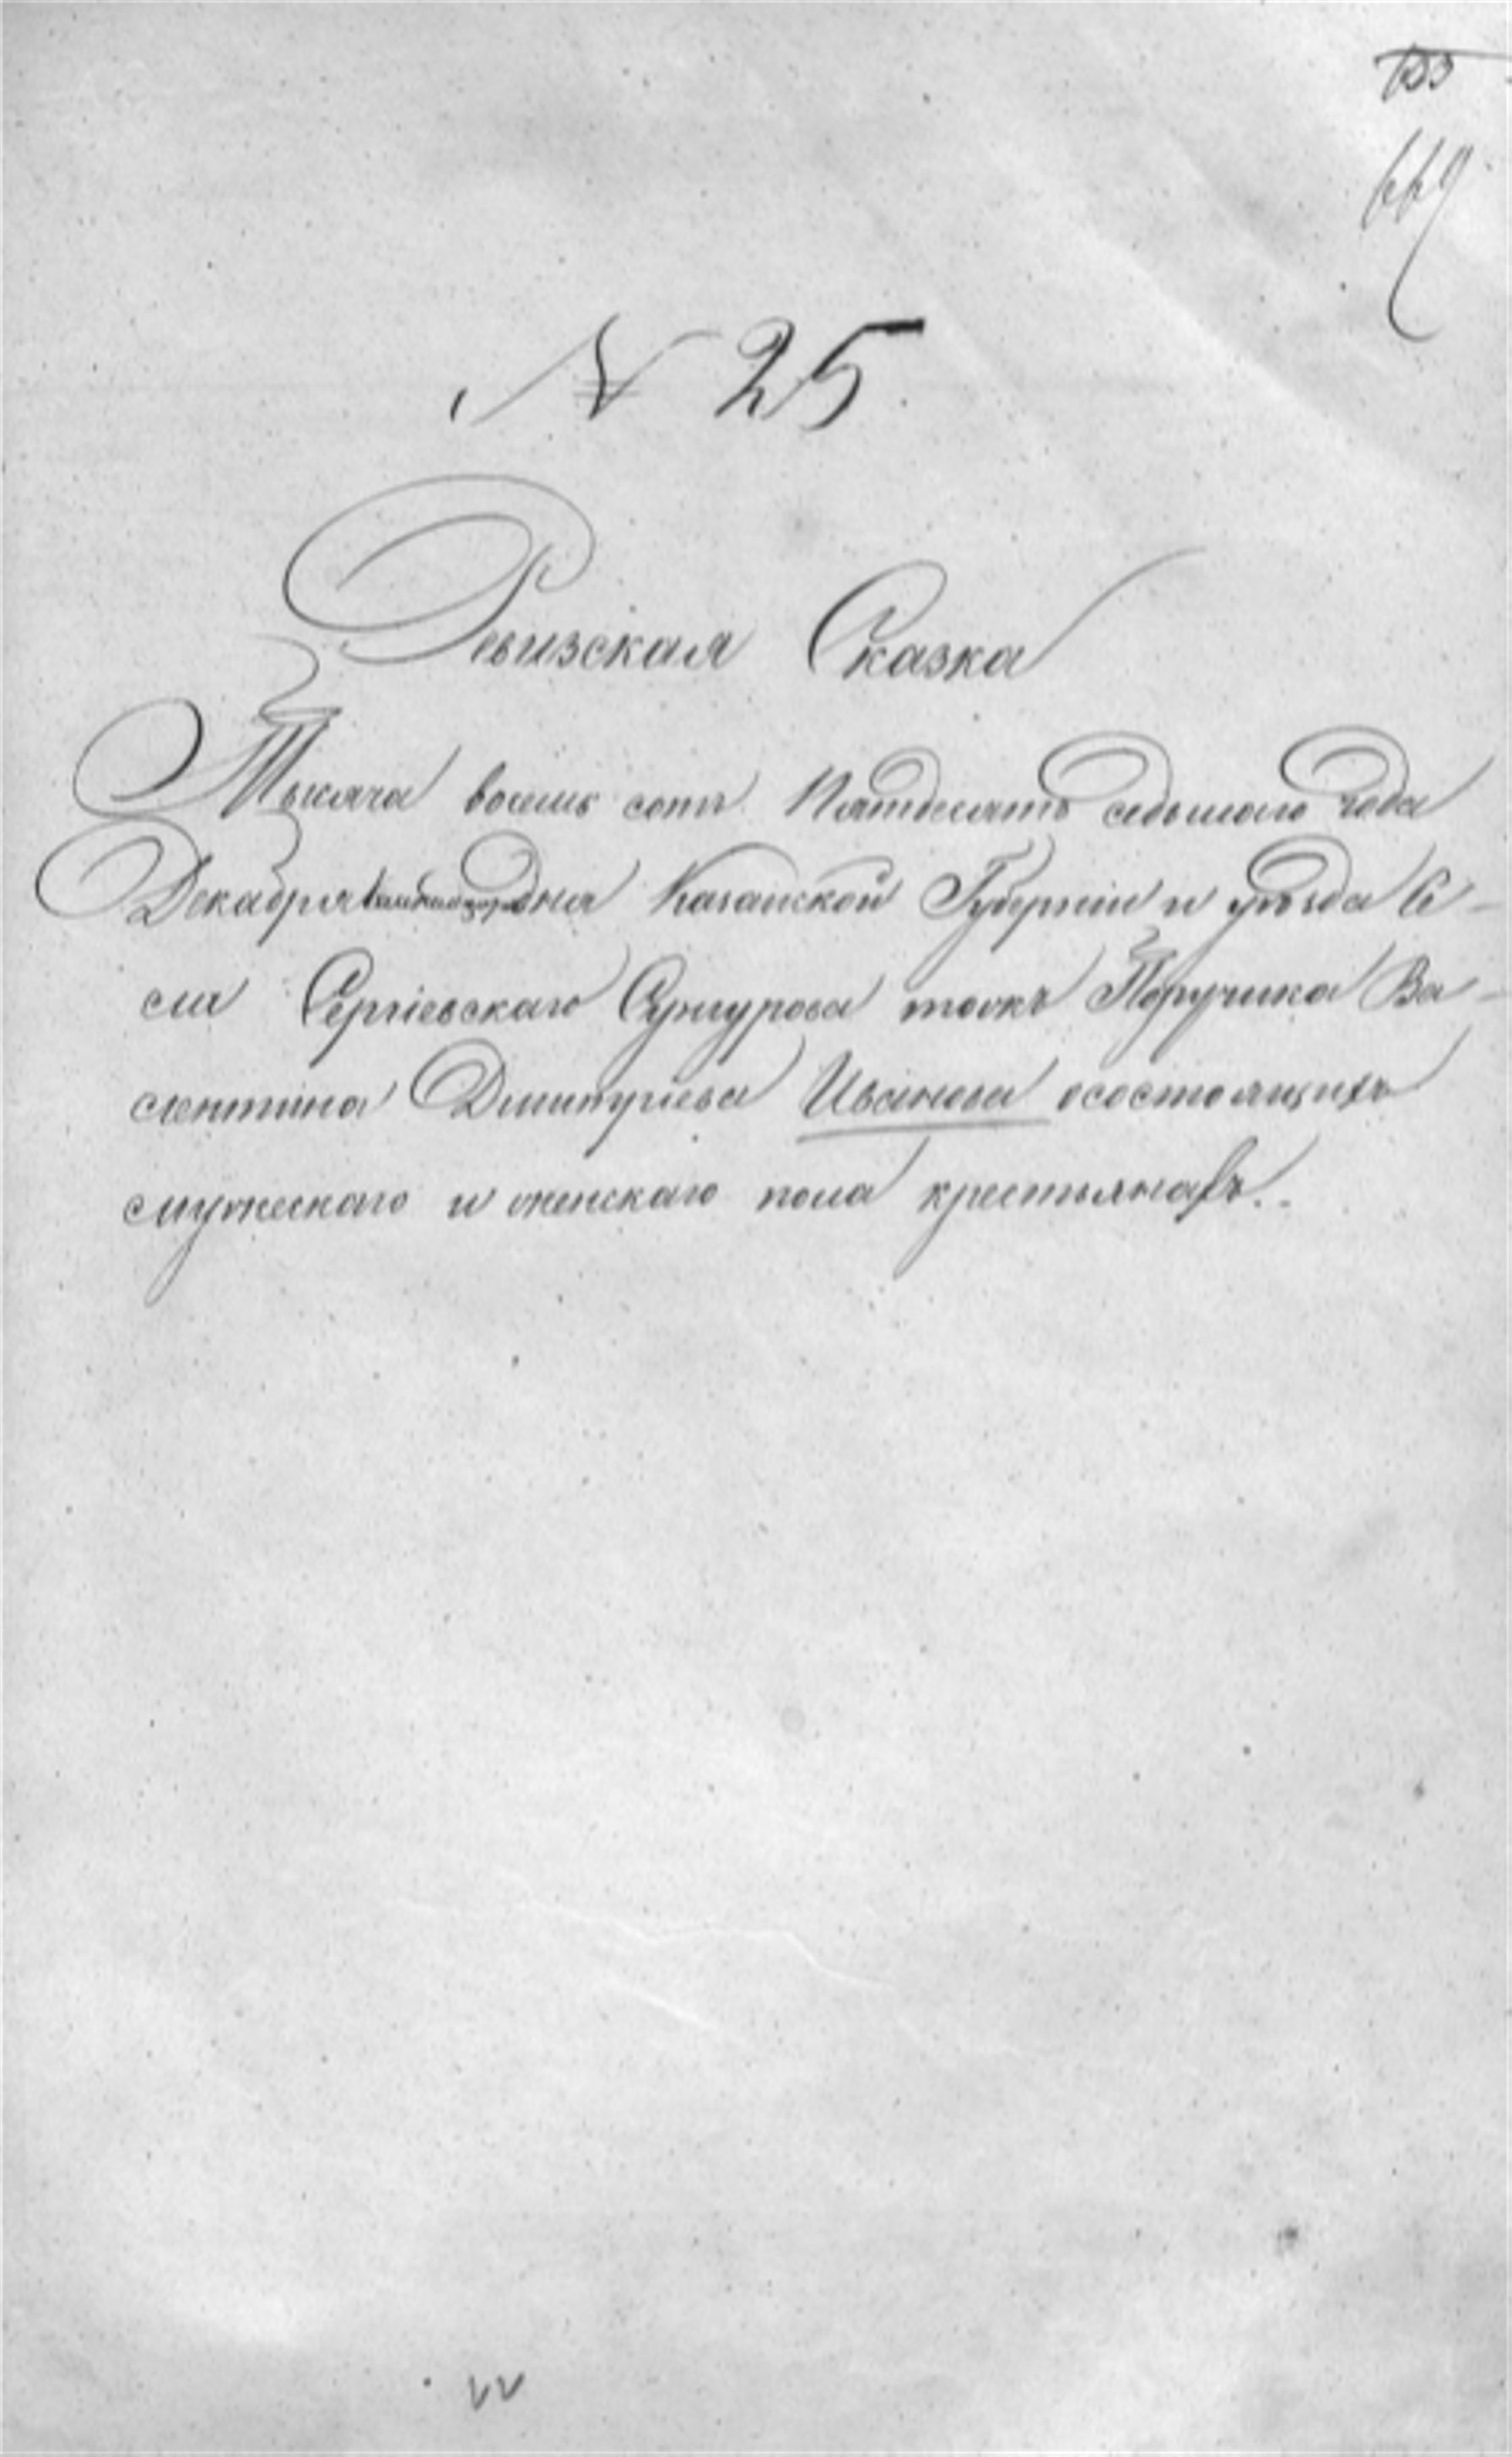 669
№ 25.
Ревизская Сказка
Тысяча восемь сотъ Пятдесятъ седьмаго года
Декабря дня Казанской Губерніи и уѣзда Се-
ла Сергіевскаго Сунгурова тожъ Поручика Ва-
лентина Дмитріева Иванова осостоящихъ
мужескаго и женскаго пола крестьянахъ.